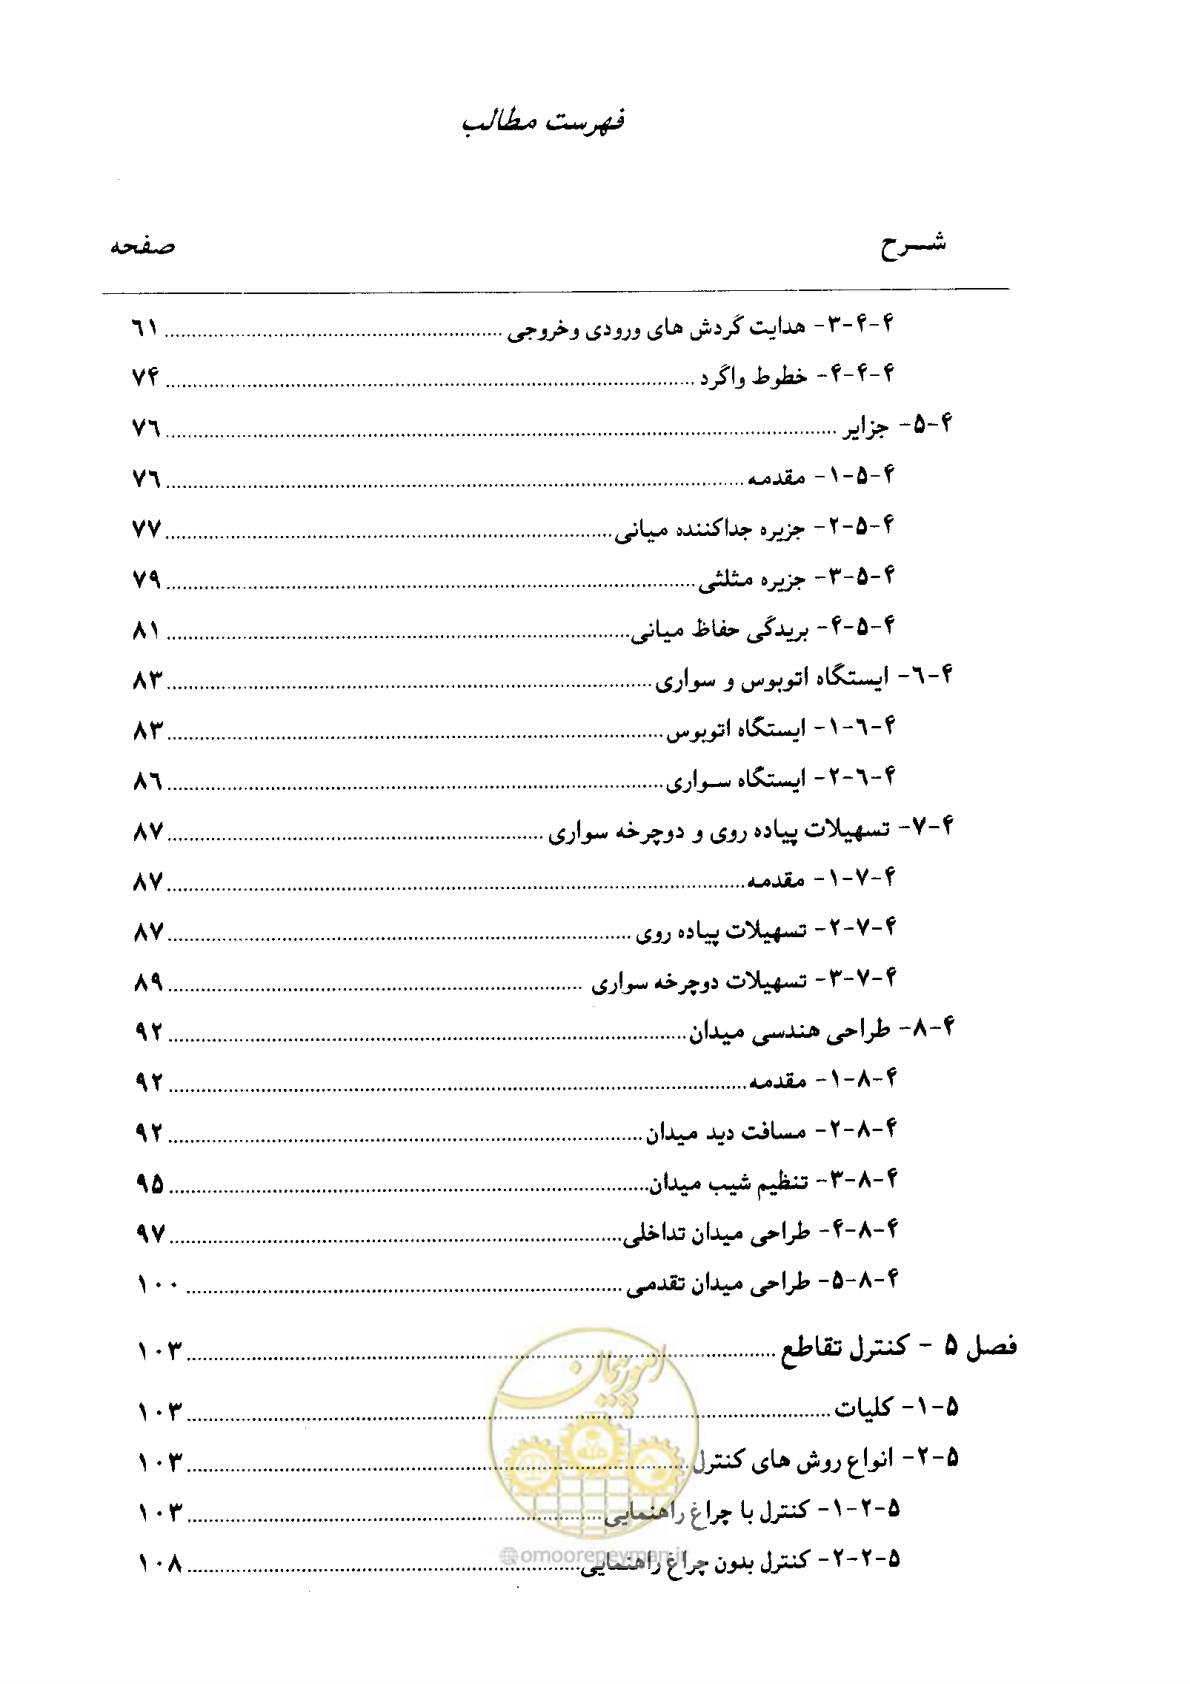 فهرست مطالب
شـــرح صفحه
۴-۴-۳- هدایت گردش های ورودی وخروجی ........ ۶۱
۴-۴-۴- خطوط واگرد ........ ۷۴
۴-۵- جزایر ........ ۷۶
۴-۵-۱- مقدمه ........ ۷۶
۴-۵-۲- جزیره جداکننده میانی ........ ۷۷
۴-۵-۳- جزیره مثلثی ........ ۷۹
۴-۵-۴- بریدگی حفاظ میانی ........ ۸۱
۴-۶- ایستگاه اتوبوس و سواری ........ ۸۳
۴-۶-۱- ایستگاه اتوبوس ........ ۸۳
۴-۶-۲- ایستگاه سـواری ........ ۸۶
۴-۷- تسهیلات پیاده روی و دوچرخه سواری ........ ۸۷
۴-۷-۱- مقدمه ........ ۸۷
۴-۷-۲- تسهیلات پیاده روی ........ ۸۷
۴-۷-۳- تسهیلات دوچرخه سواری ........ ۸۹
۴-۸- طراحی هندسی میدان ........ ۹۲
۴-۸-۱- مقدمه ........ ۹۲
۴-۸-۲- مسافت دید میدان ........ ۹۲
۴-۸-۳- تنظیم شیب میدان ........ ۹۵
۴-۸-۴- طراحی میدان تداخلی ........ ۹۷
۴-۸-۵- طراحی میدان تقدمی ........ ۱۰۰
فصل ۵ - کنترل تقاطع ........ ۱۰۳
۵-۱- کلیات ........ ۱۰۳
۵-۲- انواع روش های کنترل ........ ۱۰۳
۵-۲-۱- کنترل با چراغ راهنمایی ........ ۱۰۳
۵-۲-۲- کنترل بدون چراغ راهنمایی ........ ۱۰۸
امور پیمان
@omoorepeyman.ir